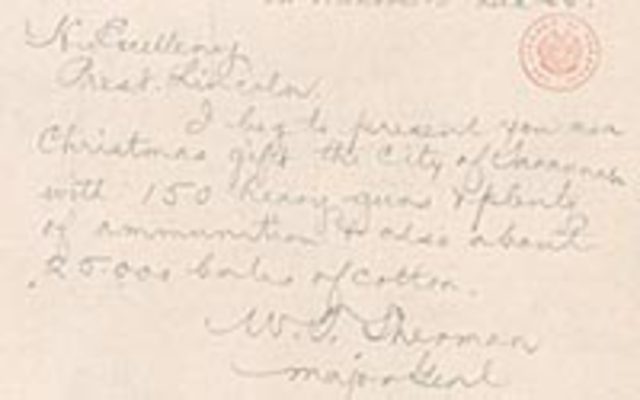 His Excellency
Prest. Lincoln.
I beg to present you as a
Christmas gift the City of Savannah
with 150 heavy guns & plenty
of ammunition & also about
25.000 bales of cotton.
W. T. Sherman
Major Genl